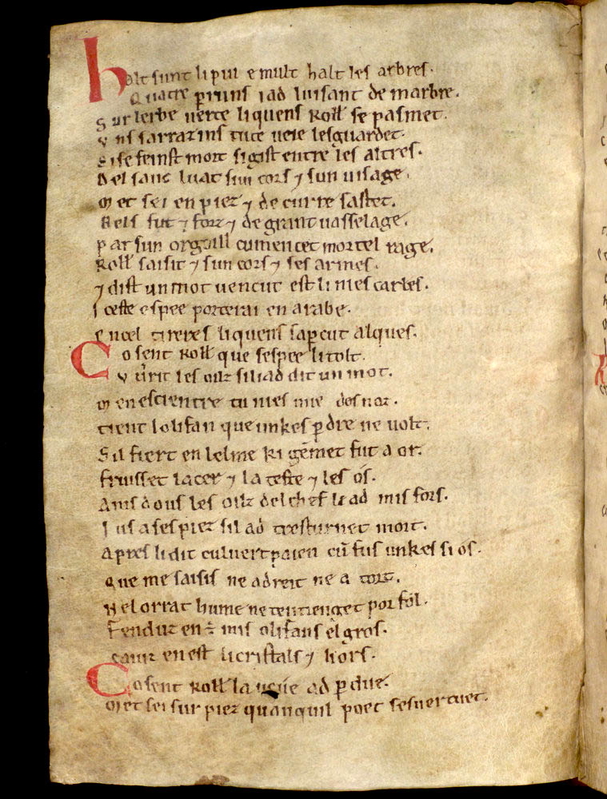 halt sunt li pui e mult halt les arbres.
Quatre perruns i ad luisant de marbre.
Sur lerbe verte li quens Roll se pasmet.
Vns sarrazins tute veie lesguardet.
Si se feinst mort si gist entre les altres.
Del sanc luat sun cors ⁊ sun uisage.
Met sei en piez ⁊ de curre sastet.
Bels fut ⁊ forz ⁊ de grant uasselage.
Par sun orguill cumencet mortel rage.
Roll saisit ⁊ sun cors ⁊ ses armes.
⁊ dist un mot uencut est li nies carles.
Iceste espee porterai en arabe.
En cel tireres li quens saperçut alques.
Co sent Roll que sespee li tolt.
Vuurit les oilz si li ad dit un mot.
Men escientre tu nies mie des noz.
Tient lolifan que unkes perdre ne uolt.
Sil fiert en lelme ki gemmet fut a or.
Fruisset lacer ⁊ la teste ⁊ les os.
Amsdous les oilz del chef li ad mis fors.
Jus a ses piez sil ad tresturnet mort.
Apres li dit culuert paien cum fus unkes si os.
Que me saisis ne a dreit ne a tort.
Ne lorrat hume ne ten tienget por fol.
Fenduz en est mis olifans el gros.
Caiuz en est li cristals ⁊ li ors.
Co sent Roll la ueue ad perdue.
Met sei sur piez quanquil poet sesuertuet.